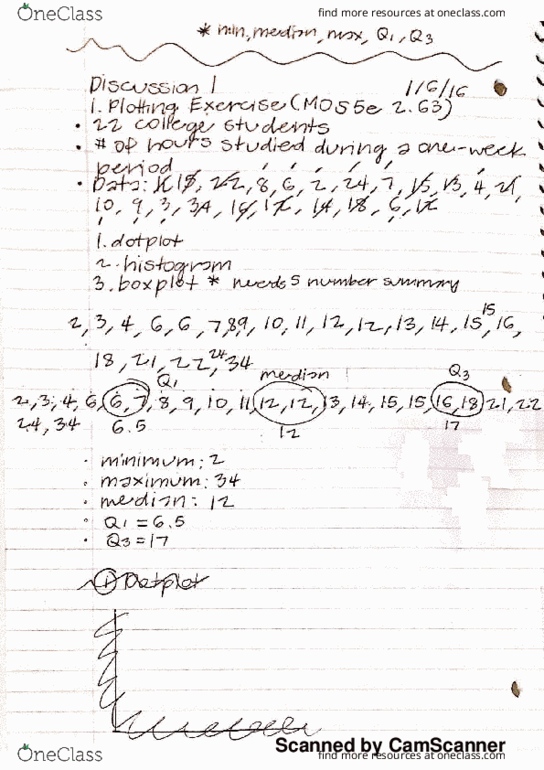 OneClass
find more resources at oneclass.com
* min, median, max, Q1, Q3
Discussion 1 1/6/16
1. Plotting Exercise (MOS5e 2.63)
• 22 college students
• # of hours studied during a one-week
period
• Data: 15, 22, 8, 6, 2, 24, 7, 15, 13, 4, 21,
10, 9, 3, 34, 16, 12, 14, 18, 6, 12
1. dotplot
2. histogram
3. boxplot * needs 5 number summary
2, 3, 4, 6, 6, 7, 8, 9, 10, 11, 12, 12, 13, 14, 15, 15, 16,
18, 21, 22, 24, 34
Q1 median Q3
2, 3, 4, 6, 6, 7, 8, 9, 10, 11, 12, 12, 13, 14, 15, 15, 16, 18, 21, 22
24, 34 6.5 12 17
• minimum: 2
• maximum: 34
• median: 12
• Q1 = 6.5
• Q3 = 17
1 Dotplot
Scanned by CamScanner
OneClass
find more resources at oneclass.com